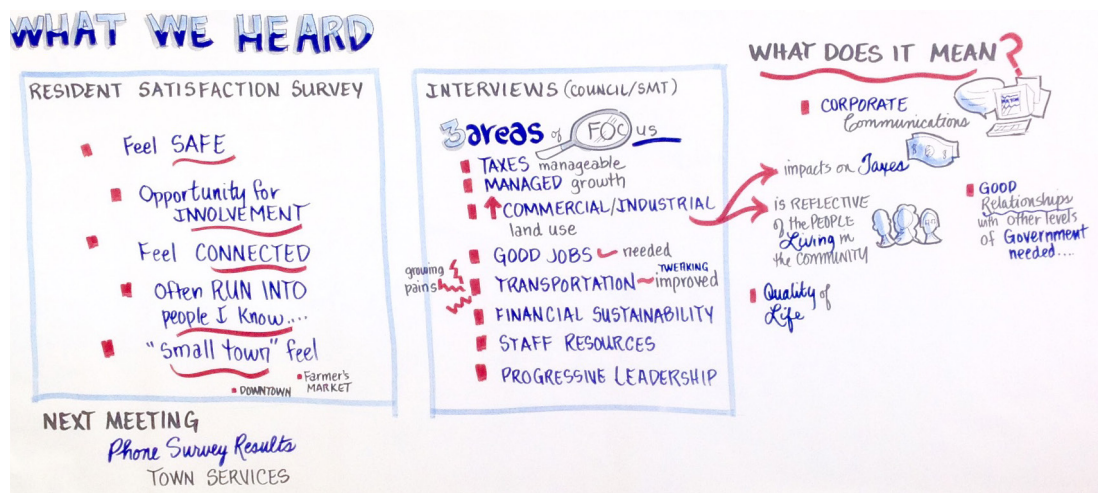 WHAT WE HEARD
RESIDENT SATISFACTION SURVEY
Feel SAFE
Opportunity for
INVOLVEMENT
Feel CONNECTED
Often RUN INTO
people I Know....
"Small Town" feel
DOWNTOWN
Farmer's
MARKET
NEXT MEETING
Phone Survey Results
TOWN SERVICES
INTERVIEWS (COUNCIL/SMT)
3 areas of FOCUS
TAXES manageable
MANAGED growth
COMMERCIAL/INDUSTRIAL
land use
GOOD JOBS needed
growing
pains
TWEAKING
TRANSPORTATION improved
FINANCIAL SUSTAINABILITY
STAFF RESOURCES
PROGRESSIVE LEADERSHIP
WHAT DOES IT MEAN?
CORPORATE
Communications
impacts on Taxes
is REFLECTIVE
of the PEOPLE
Living in
the COMMUNITY
Quality of
Life
GOOD
Relationships
with other levels
of Government
needed....